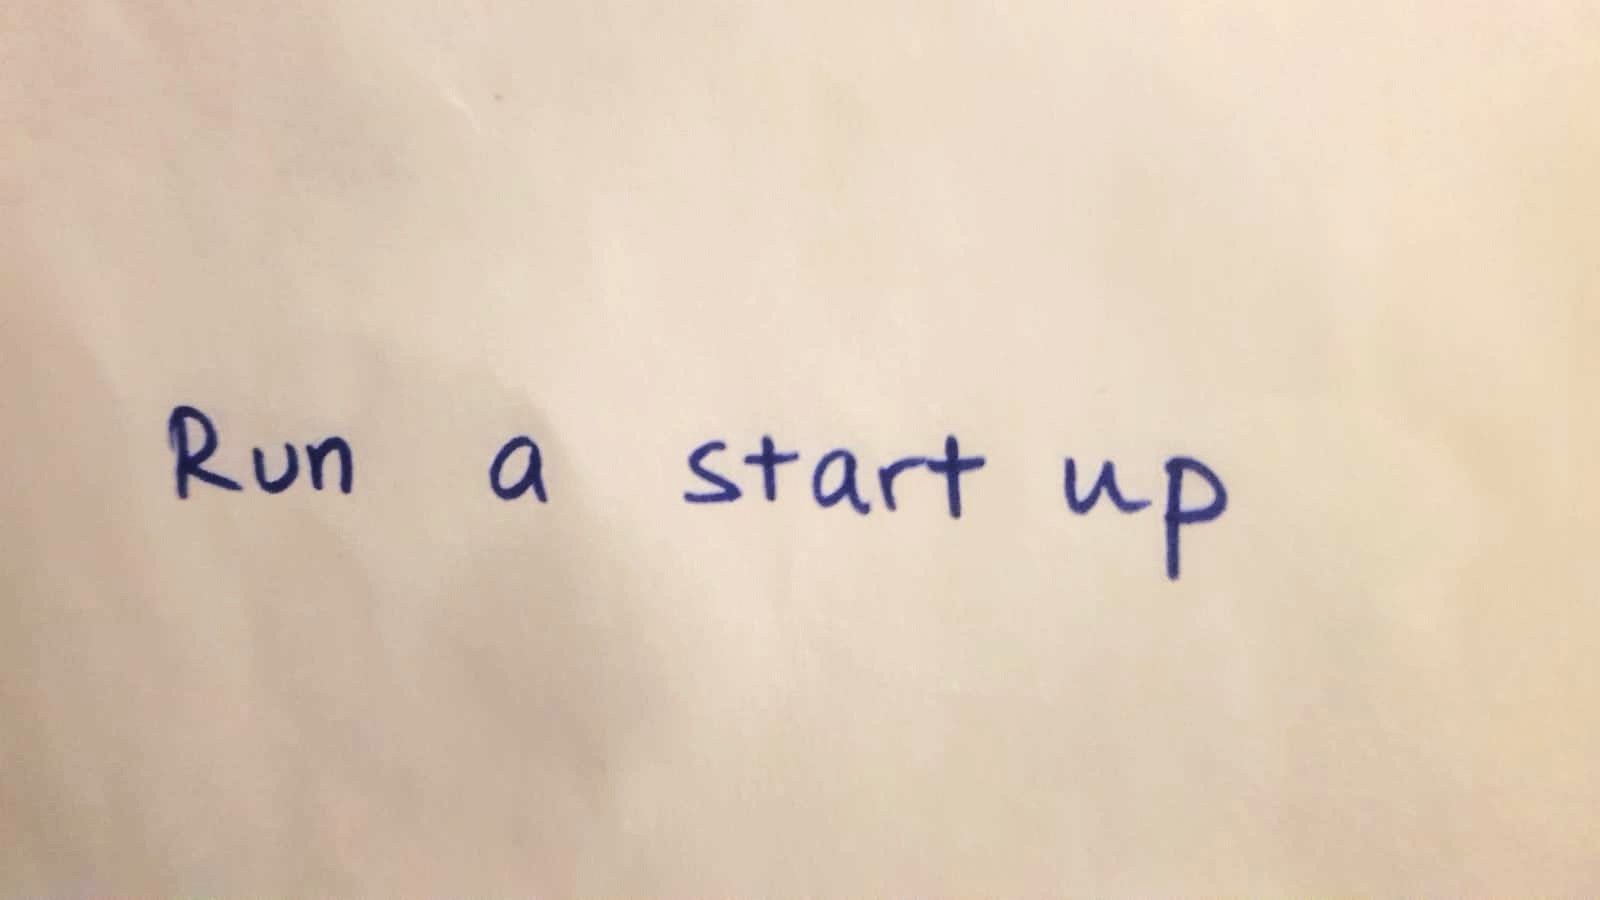 Run a start up